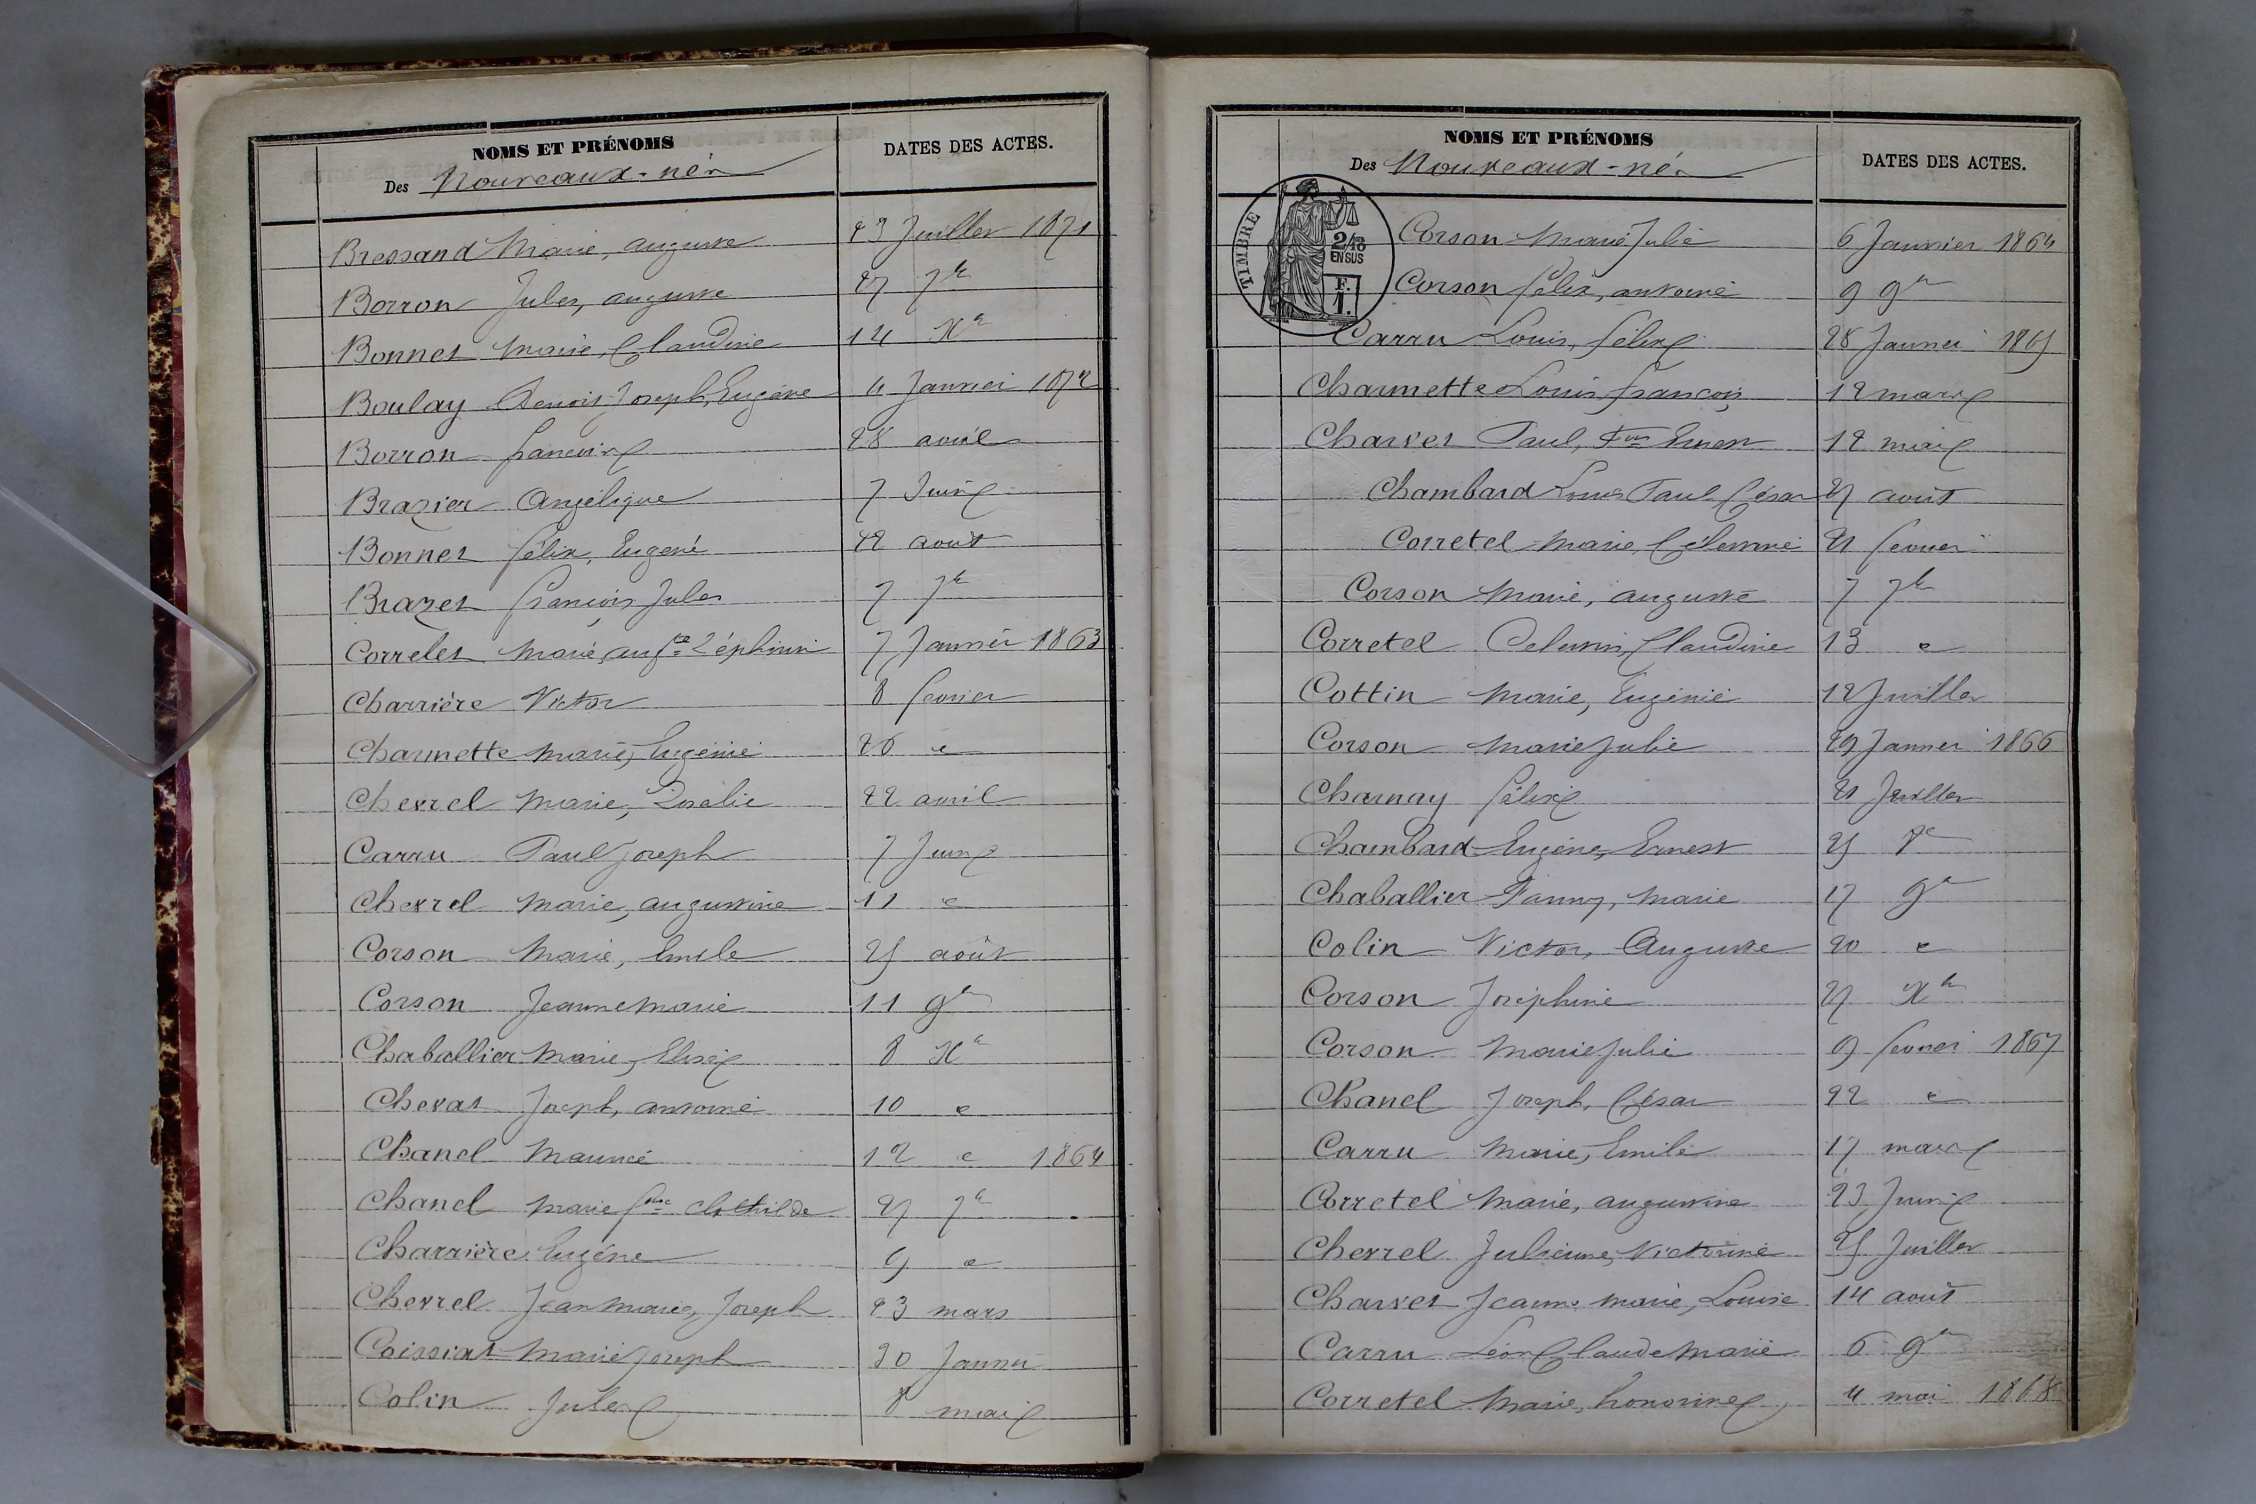 NOMS ET PRÉNOMS
Des Nouveaux-nés
DATES DES ACTES.
Bressand Marie, auguste 23 Juillet 1871
Borron Jules, auguste 27 7bre
Bonnet Marie, Claudine 14 Xbre
Boulay Benoit Joseph, Eugène 4 Janvier 1872
Borron 28 avril
Brazier Angélique 7 Juin
Bonnet Félix, Eugené 22 août
Brazet François Jules 7 7bre
Correlet Marie 7 Janvier 1863
Charrière Victor 8 fevrier
Charmette Marie, Eugénie 26 "
Chevrel Marie, Rosalie 22 avril
Carru Paul Joseph 7 Juin
Chevrel Marie, augustine 11 "
Corson Marie, Emile 25 août
Corson Jeanne Marie 11 9bre
Chaballier Marie, Elise 8 Xbre
Chevat Joseph, antoine 10 "
Chanel Maurice 12 " 1864
Chanel Marie fçse Clothilde 27 7bre
Charrière Eugène 9 "
Chevrel Jean Marie, Joseph 23 mars
Coissiat Marie Joseph 30 Janvier
Colin Jules 8 mai
NOMS ET PRÉNOMS
Des Nouveaux-nés
DATES DES ACTES.
TIMBRE
2/10
EN SUS
F.
1.
Corson Marie Julie 6 Janvier 1864
Corson Félix, antoine 9 9bre
Carru Louis, Félix 28 Janvier 1865
Charmette Louis François 12 mars
Charvet Paul, Fçois Ernest 12 mai
Chambard Louis Paul César 27 août
Corretel Marie, Célestine 21 fevrier
Corson Marie, auguste 7 7bre
Corretel Celestin, Claudine 13 "
Cottin Marie, Eugénie 12 Juillet
Corson Marie Julie 29 Janvier 1866
Charnay Félix 21 Juillet
Chambard Eugène, Ernest 25 8bre
Chaballier Fanny, Marie 17 9bre
Colin Victor, Auguste 20 "
Corson Joséphine 27 Xbre
Corson Marie Julie 9 fevrier 1867
Chanel Joseph, César 22 "
Carru Marie, Emilie 17 mars
Corretel Marie, augustine 23 Juin
Chevrel Julienne, Victorine 25 Juillet
Charvet Jeanne Marie, Louise 14 août
Carru Léon Claude Marie 6 9bre
Corretel Marie, honorine 4 mai 1868